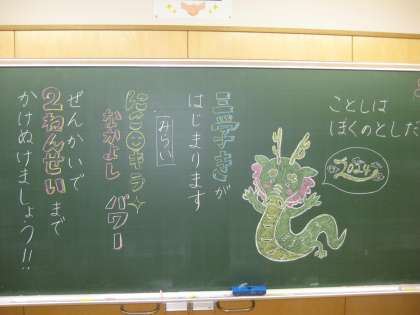 ことしは
ぼくのとしだ
2024
三学きが
はじまります
みらい
にこ○キラ
なかよし パワー
ぜんかいで
2ねんせいまで
かけぬけましょう!!